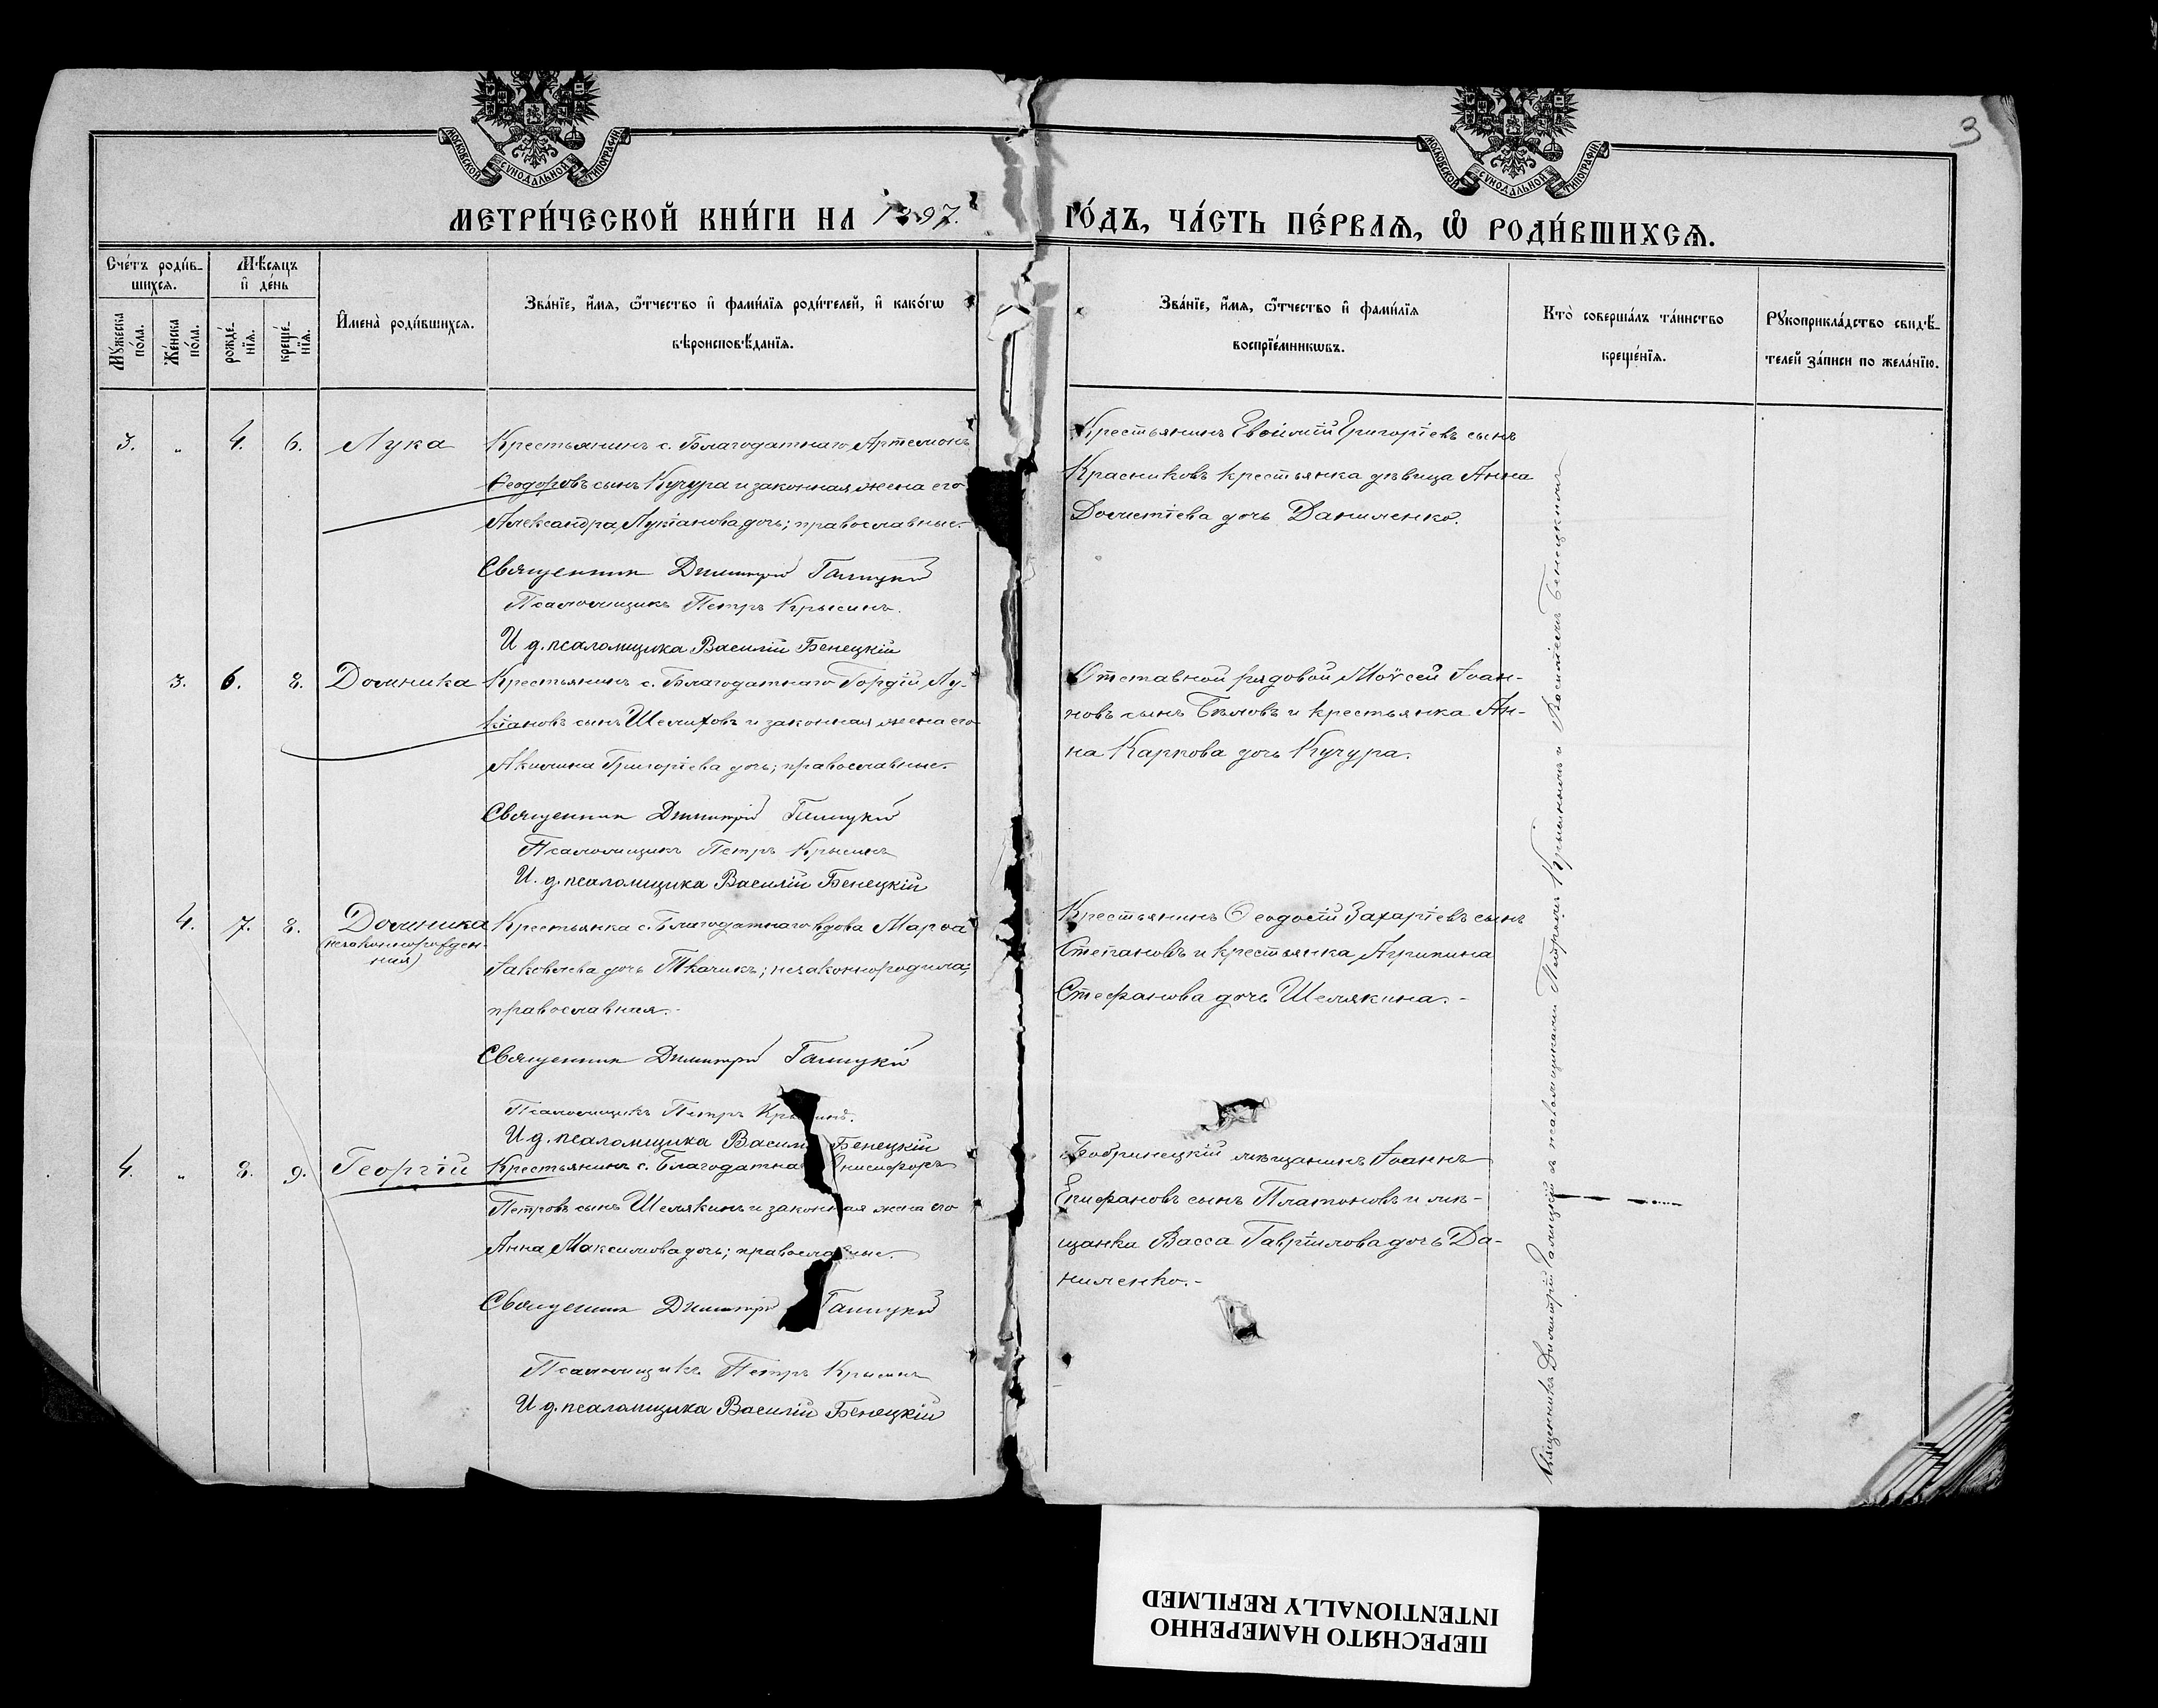 МОСКОВСКОЙ СѴНОДАЛЬНОЙ ТИПОГРАФІИ
МОСКОВСКОЙ СѴНОДАЛЬНОЙ ТИПОГРАФІИ
3
МЕТРИ́ЧЕСКОЙ КНИ́ГИ НА 1897.
ГО́ДЪ, ЧА́СТЬ ПЕ́РВАѦ, Ѽ РОДИ́ВШИХСѦ.
Сче́тъ роди́в-
шихсѧ.
Мѣ́сѧцъ
и҆ де́нь
Мꙋ́жеска
по́ла.
Же́нска
по́ла.
рожде́-
нїѧ.
креще́-
нїѧ.
И҆мена̀ роди́вшихсѧ.
Зва́нїе, и҆́мѧ, ѻ҆́тчество и҆ фами́лїѧ роди́телей, и҆ како́гѡ
вѣроисповѣ́данїѧ.
Зва́нїе, и҆́мѧ, ѻ҆́тчество и҆ фами́лїѧ
воспрїе́мникѡвъ.
Кто̀ соверша́лъ та́инство
креще́нїѧ.
Рꙋкоприкла́дство свидѣ́-
телей за́писи по жела́нїю.
3. „ 4. 6. Лука Крестьянинъ с. Благодатнаго Артемонъ
Ѳеодоровъ сынъ Кучура и законная жена его
Александра Лукіанова дочь; православные.
Священник Димитрій Галицкій
Псаломщикъ Петръ Крысинъ.
И д. псаломщика Василій Бенецкій
Крестьянинъ Евѳимій Григоріевъ сынъ
Красниковъ крестьянка дѣвица Анна
Дометіева дочь Даниленко.
3. 6. 8. Домника Крестьянинъ с. Благодатнаго Гордій Лу-
кіановъ сынъ Шелиховъ и законная жена его
Акилина Григоріева дочь; православные.
Священник Димитрій Галицкій
Псаломщикъ Петръ Крысинъ
И. д. псаломщика Василій Бенецкій
Отставной рядовой Моѵсей Іоан-
новъ сынъ Бѣловъ и крестьянка Ан-
на Карпова дочь Кучура.
4. 7. 8. Домника Крестьянка с. Благодатнаго вдова Марѳа
(незаконнорожден-
ная)
Іаковлева дочь Ткачикъ; незаконнородила;
православная.-
Священник Димитрій Галицкій
Псаломщикъ Петръ Крысинъ.
И д. псаломщика Василій Бенецкій
Крестьянинъ Ѳеодосій Захаріевъ сынъ
Степановъ и крестьянка Агрипина
Стефанова дочь Шелякина.-
4. „ 8. 9. Георгій Крестьянинъ с. Благодатна Онисифоръ
Петровъ сынъ Шелякинъ и законная жена его
Анна Максимова дочь; православные.
Священник Димитрій Галицкій
Псаломщикъ Петръ Крысинъ
И д. псаломщика Василій Бенецкій
Бобринецкій мѣщанинъ Іоаннъ
Епифановъ сынъ Платоновъ и мѣ-
щанка Васса Гавріилова дочь Да-
ниленко.-
Священникъ Димитрій Галицкій съ псаломщиками Петромъ Крысинымъ и Василіемъ Бенецкимъ
ПЕРЕСНЯТО НАМЕРЕННО
INTENTIONALLY REFILMED